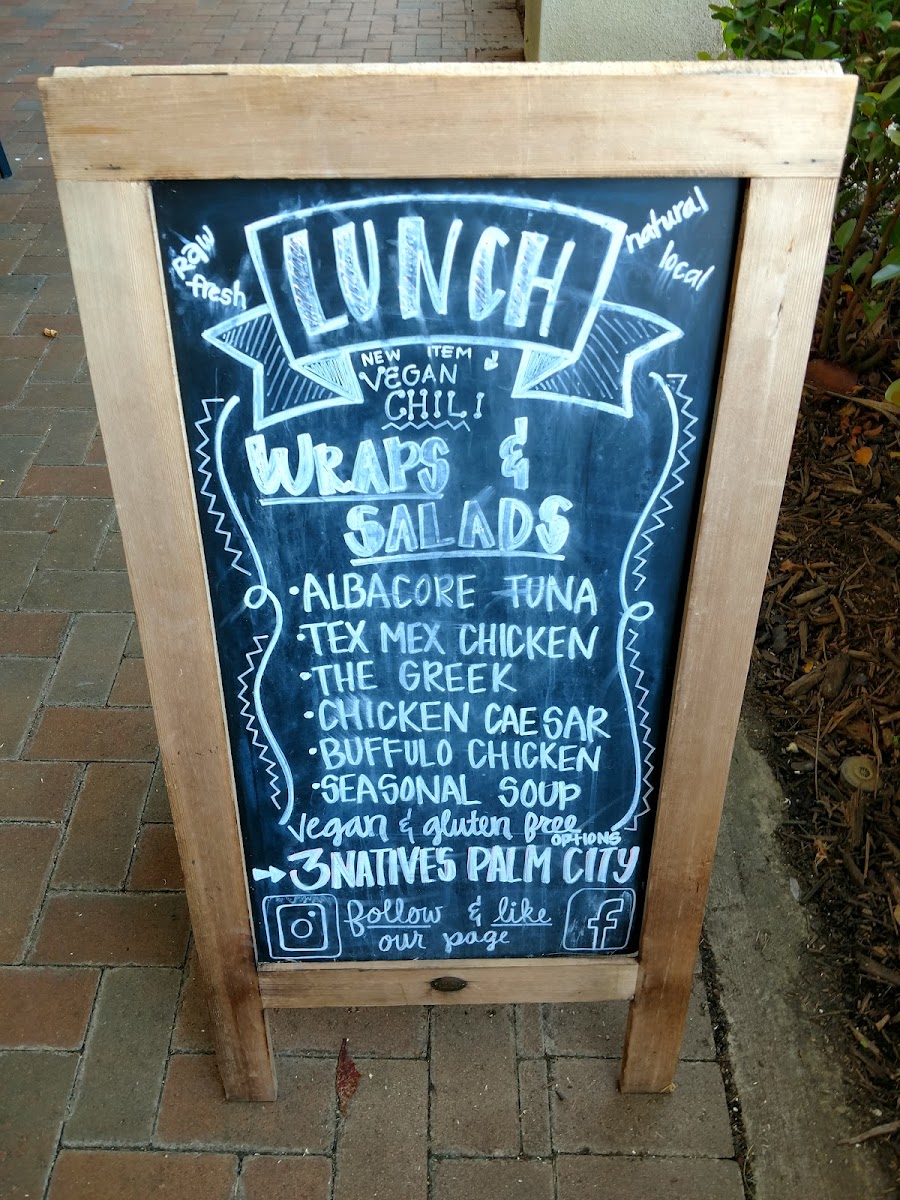 raw
fresh
LUNCH
natural
local
NEW ITEM
VEGAN
CHILI
WRAPS &
SALADS
•ALBACORE TUNA
•TEX MEX CHICKEN
•THE GREEK
•CHICKEN CAESAR
•BUFFULO CHICKEN
•SEASONAL SOUP
vegan & gluten free
OPTIONS
→3NATIVES PALM CITY
follow & like
our page
f